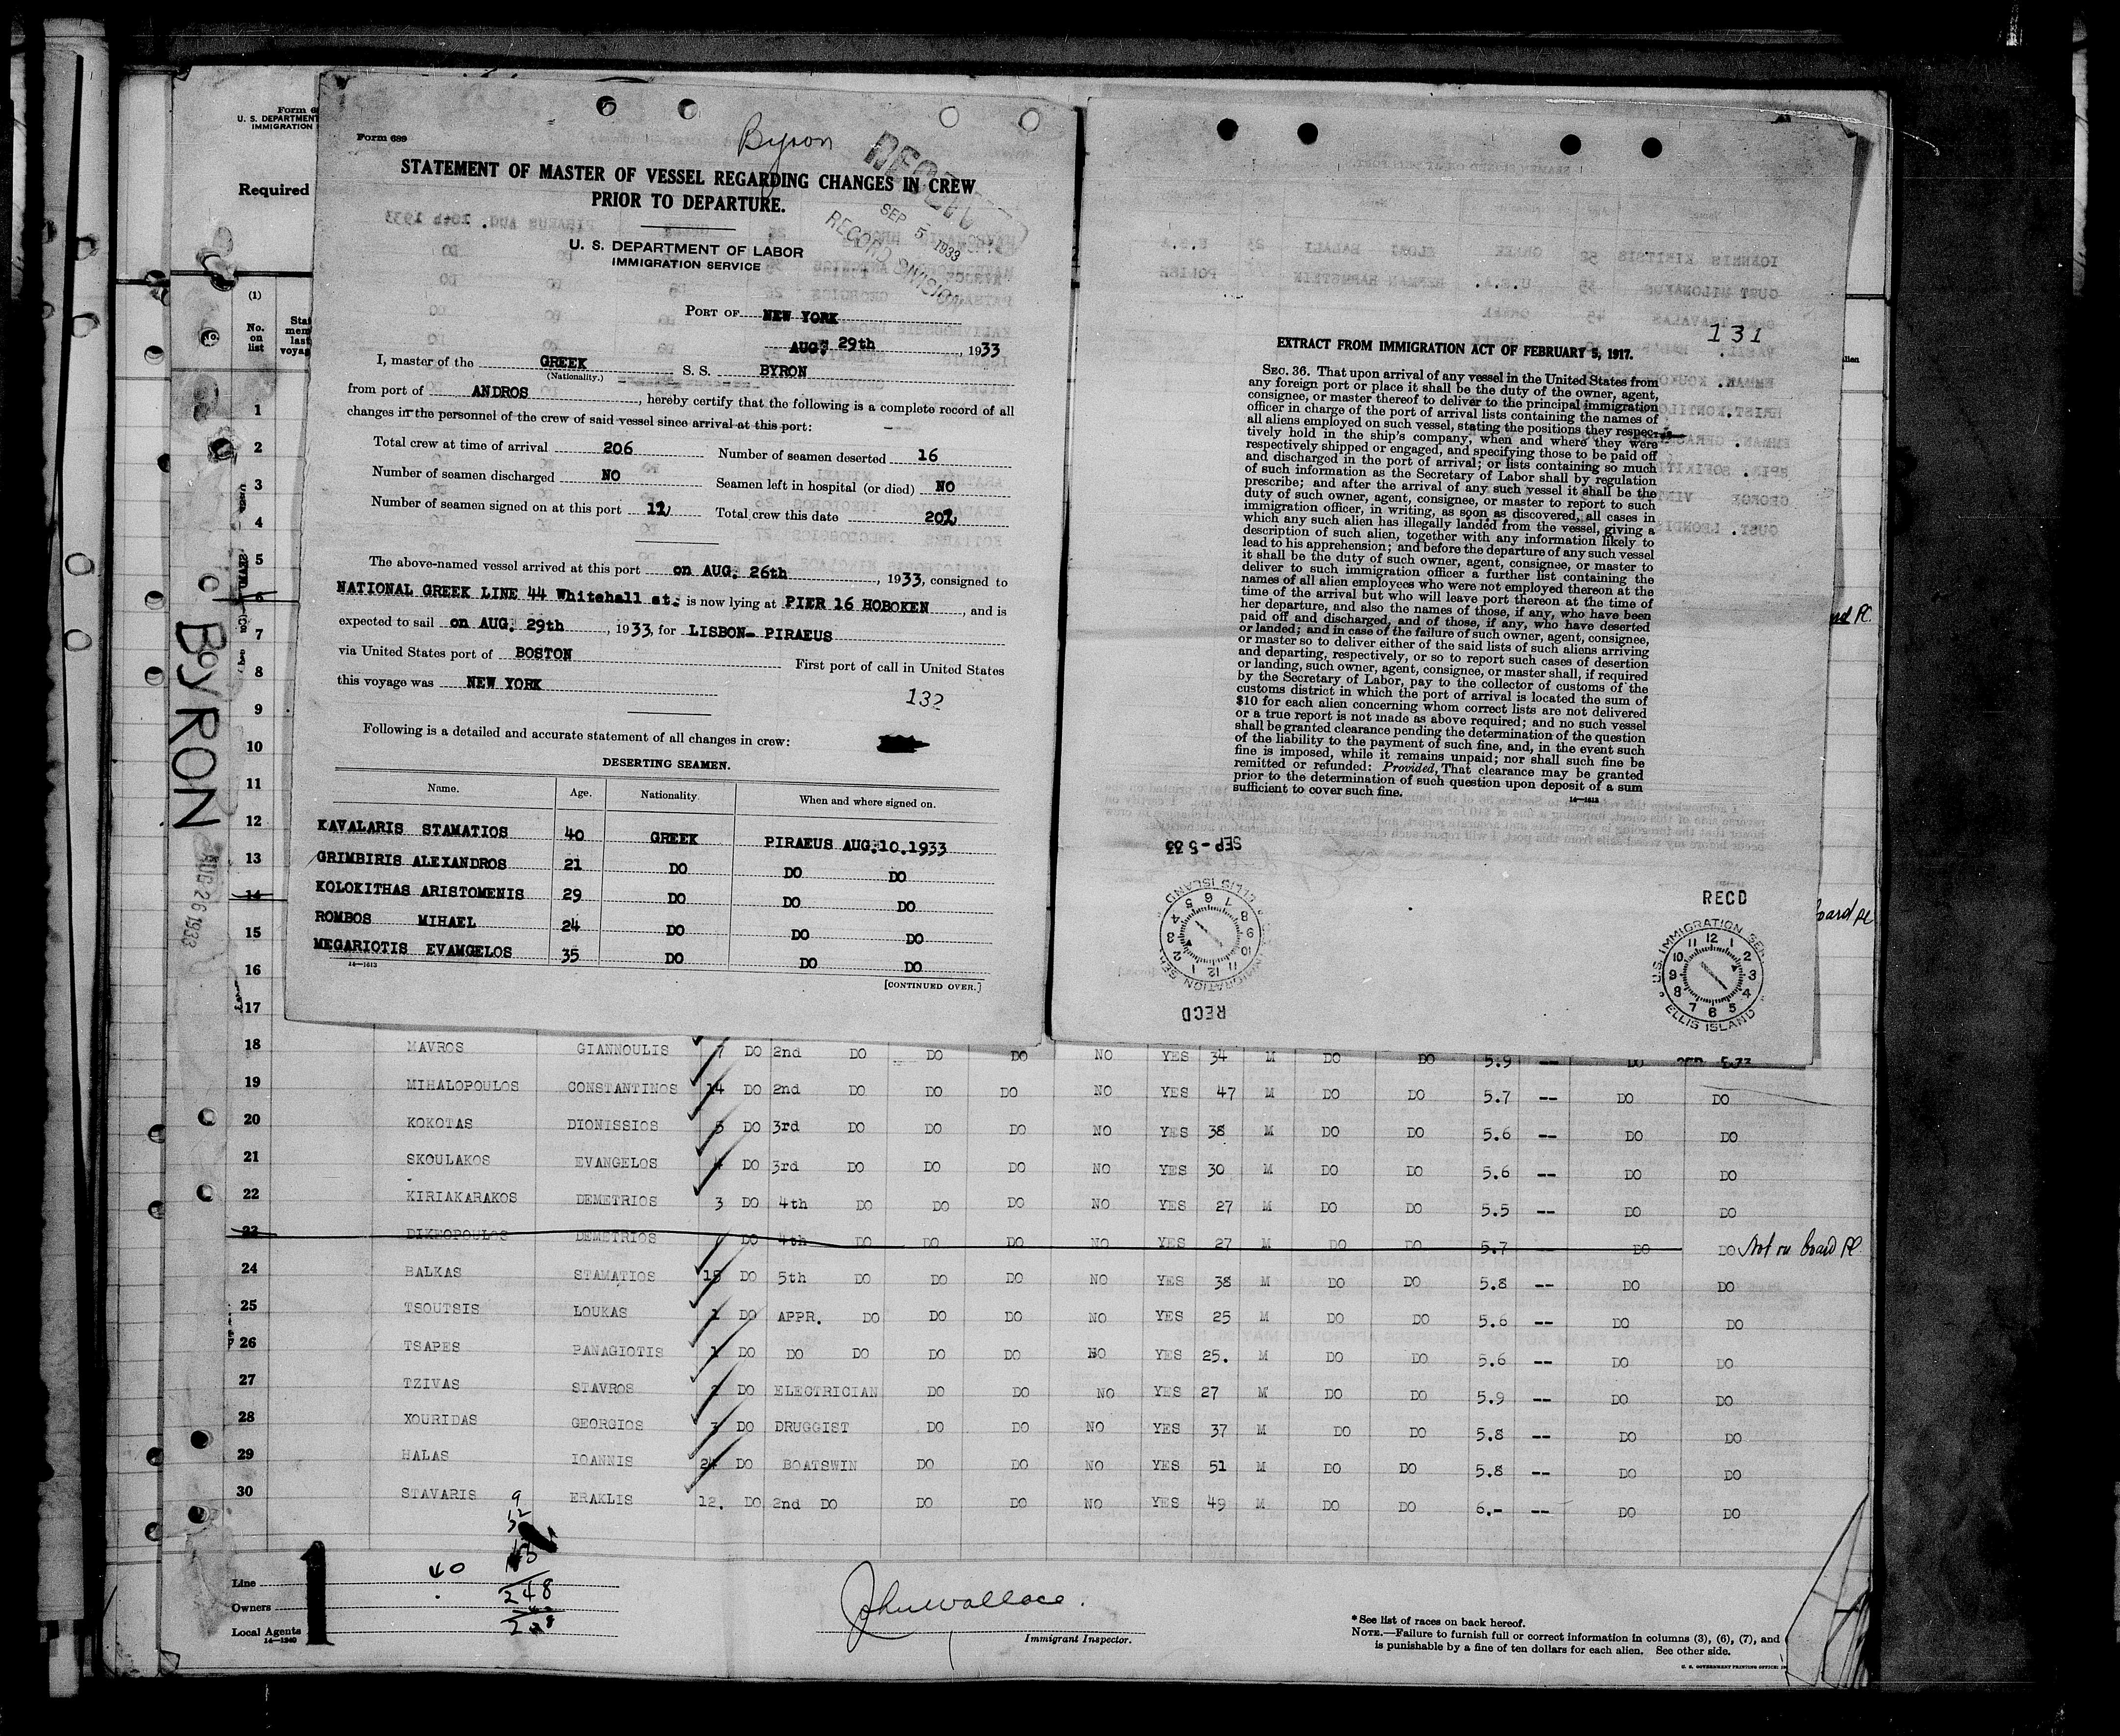 Form 689
Byron
STATEMENT OF MASTER OF VESSEL REGARDING CHANGES IN CREW
PRIOR TO DEPARTURE.
U. S. DEPARTMENT OF LABOR
IMMIGRATION SERVICE
SEP 5 1933
RECORD DIVISION
PORT OF NEW YORK
AUG. 29th, 1933
I, master of the GREEK S. S. BYRON
(Nationality.)
from port of ANDROS, hereby certify that the following is a complete record of all
changes in the personnel of the crew of said vessel since arrival at this port:
Total crew at time of arrival 206 Number of seamen deserted 16
Number of seamen discharged NO Seamen left in hospital (or died) NO
Number of seamen signed on at this port Total crew this date
The above-named vessel arrived at this port on AUG. 26th, 1933, consigned to
NATIONAL GREEK LINE 44 Whitehall st. is now lying at PIER 16 HOBOKEN, and is
expected to sail on AUG. 29th, 1933, for LISBON- PIRAEUS
via United States port of BOSTON First port of call in United States
this voyage was NEW YORK
132
Following is a detailed and accurate statement of all changes in crew:
DESERTING SEAMEN.
Name. Age. Nationality. When and where signed on.
KAVALARIS STAMATIOS 40 GREEK PIRAEUS AUG.10.1933
GRIMBIRIS ALEXANDROS 21 DO DO DO
KOLOKITHAS ARISTOMENIS 29 DO DO DO
ROMBOS MIHAEL 24 DO DO DO
MEGARIOTIS EVAMGELOS 35 DO DO DO
14—1613
[CONTINUED OVER.]
131
EXTRACT FROM IMMIGRATION ACT OF FEBRUARY 5, 1917.
SEC. 36. That upon arrival of any vessel in the United States from
any foreign port or place it shall be the duty of the owner, agent,
consignee, or master thereof to deliver to the principal immigration
officer in charge of the port of arrival lists containing the names of
all aliens employed on such vessel, stating the positions they respec-
tively hold in the ship's company, when and where they were
respectively shipped or engaged, and specifying those to be paid off
and discharged in the port of arrival; or lists containing so much
of such information as the Secretary of Labor shall by regulation
prescribe; and after the arrival of any such vessel it shall be the
duty of such owner, agent, consignee, or master to report to such
immigration officer, in writing, as soon as discovered, all cases in
which any such alien has illegally landed from the vessel, giving a
description of such alien, together with any information likely to
lead to his apprehension; and before the departure of any such vessel
it shall be the duty of such owner, agent, consignee, or master to
deliver to such immigration officer a further list containing the
names of all alien employees who were not employed thereon at the
time of the arrival but who will leave port thereon at the time of
her departure, and also the names of those, if any, who have been
paid off and discharged, and of those, if any, who have deserted
or landed; and in case of the failure of such owner, agent, consignee,
or master so to deliver either of the said lists of such aliens arriving
and departing, respectively, or so to report such cases of desertion
or landing, such owner, agent, consignee, or master shall, if required
by the Secretary of Labor, pay to the collector of customs of the
customs district in which the port of arrival is located the sum of
$10 for each alien concerning whom correct lists are not delivered
or a true report is not made as above required; and no such vessel
shall be granted clearance pending the determination of the question
of the liability to the payment of such fine, and, in the event such
fine is imposed, while it remains unpaid; nor shall such fine be
remitted or refunded: Provided, That clearance may be granted
prior to the determination of such question upon deposit of a sum
sufficient to cover such fine.
14—1613
SEP -5 33
U.S. IMMIGRATION SER.
ELLIS ISLAND
RECD
RECD
U.S. IMMIGRATION SER.
ELLIS ISLAND
U. S. DEPARTMENT
IMMIGRATION
Required
(1)
No.
on
list
BYRON
AUG 26 1933
1
2
3
4
5
6
7
8
9
10
11
12
13
14
15
16
17
18 MAVROS GIANNOULIS 7 DO 2nd DO DO DO NO YES 34 M DO DO 5.9 -- DO
19 MIHALOPOULOS CONSTANTINOS 14 DO 2nd DO DO DO NO YES 47 M DO DO 5.7 -- DO DO
20 KOKOTAS DIONISSIOS 5 DO 3rd DO DO DO NO YES 38 M DO DO 5.6 -- DO DO
21 SKOULAKOS EVANGELOS 4 DO 3rd DO DO DO NO YES 30 M DO DO 5.6 -- DO DO
22 KIRIAKARAKOS DEMETRIOS 3 DO 4th DO DO DO NO YES 27 M DO DO 5.5 -- DO DO
23 DIKEOPOULOS DEMETRIOS DO 4th DO DO DO NO YES 27 M DO DO 5.7 DO DO Not on board
24 BALKAS STAMATIOS 15 DO 5th DO DO DO NO YES 38 M DO DO 5.8 -- DO DO
25 TSOUTSIS LOUKAS 1 DO APPR. DO DO DO NO YES 25 M DO DO 5.6 -- DO DO
26 TSAPES PANAGIOTIS 1 DO DO DO DO DO NO YES 25. M DO DO 5.6 -- DO DO
27 TZIVAS STAVROS 2 DO ELECTRICIAN DO DO NO YES 27 M DO DO 5.9 -- DO DO
28 XOURIDAS GEORGIOS 3 DO DRUGGIST DO DO NO YES 37 M DO DO 5.8 -- DO DO
29 HALAS IOANNIS 24 DO BOATSWIN DO DO NO YES 51 M DO DO 5.8 -- DO DO
30 STAVARIS ERAKLIS 12. DO 2nd DO DO DO NO YES 49 M DO DO 6.- -- DO DO
40
248
Line
Owners
Local Agents
14—1240
1
John Wallace.
Immigrant Inspector.
*See list of races on back hereof.
NOTE.—Failure to furnish full or correct information in columns (3), (6), (7), and
is punishable by a fine of ten dollars for each alien. See other side.
U. S. GOVERNMENT PRINTING OFFICE